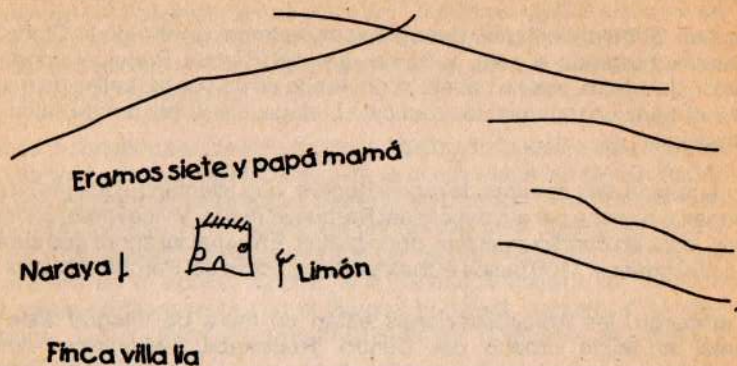 Eramos siete y papá mamá
Naraya Limón
Finca villa lia